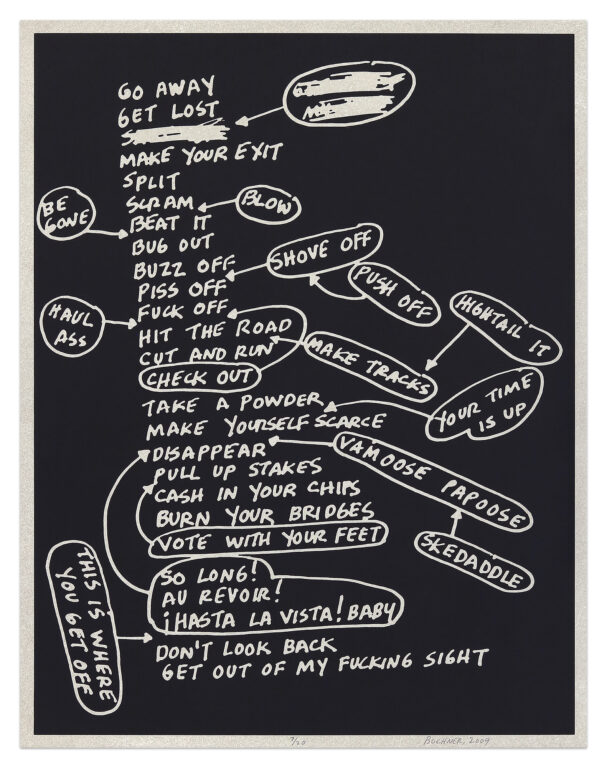 GO AWAY
GET LOST
MAKE YOUR EXIT
SPLIT
SCRAM
BLOW
BE
GONE
BEAT IT
BUG OUT
BUZZ OFF
SHOVE OFF
PUSH OFF
PISS OFF
FUCK OFF
HAUL
ASS
HIT THE ROAD
HIGHTAIL IT
CUT AND RUN
MAKE TRACKS
CHECK OUT
TAKE A POWDER
YOUR TIME
IS UP
MAKE YOURSELF SCARCE
DISAPPEAR
VAMOOSE PAPOOSE
SKEDADDLE
PULL UP STAKES
CASH IN YOUR CHIPS
BURN YOUR BRIDGES
VOTE WITH YOUR FEET
SO LONG!
AU REVOIR!
¡HASTA LA VISTA! BABY
THIS IS WHERE
YOU GET OFF
DON'T LOOK BACK
GET OUT OF MY FUCKING SIGHT
BOCHNER, 2009